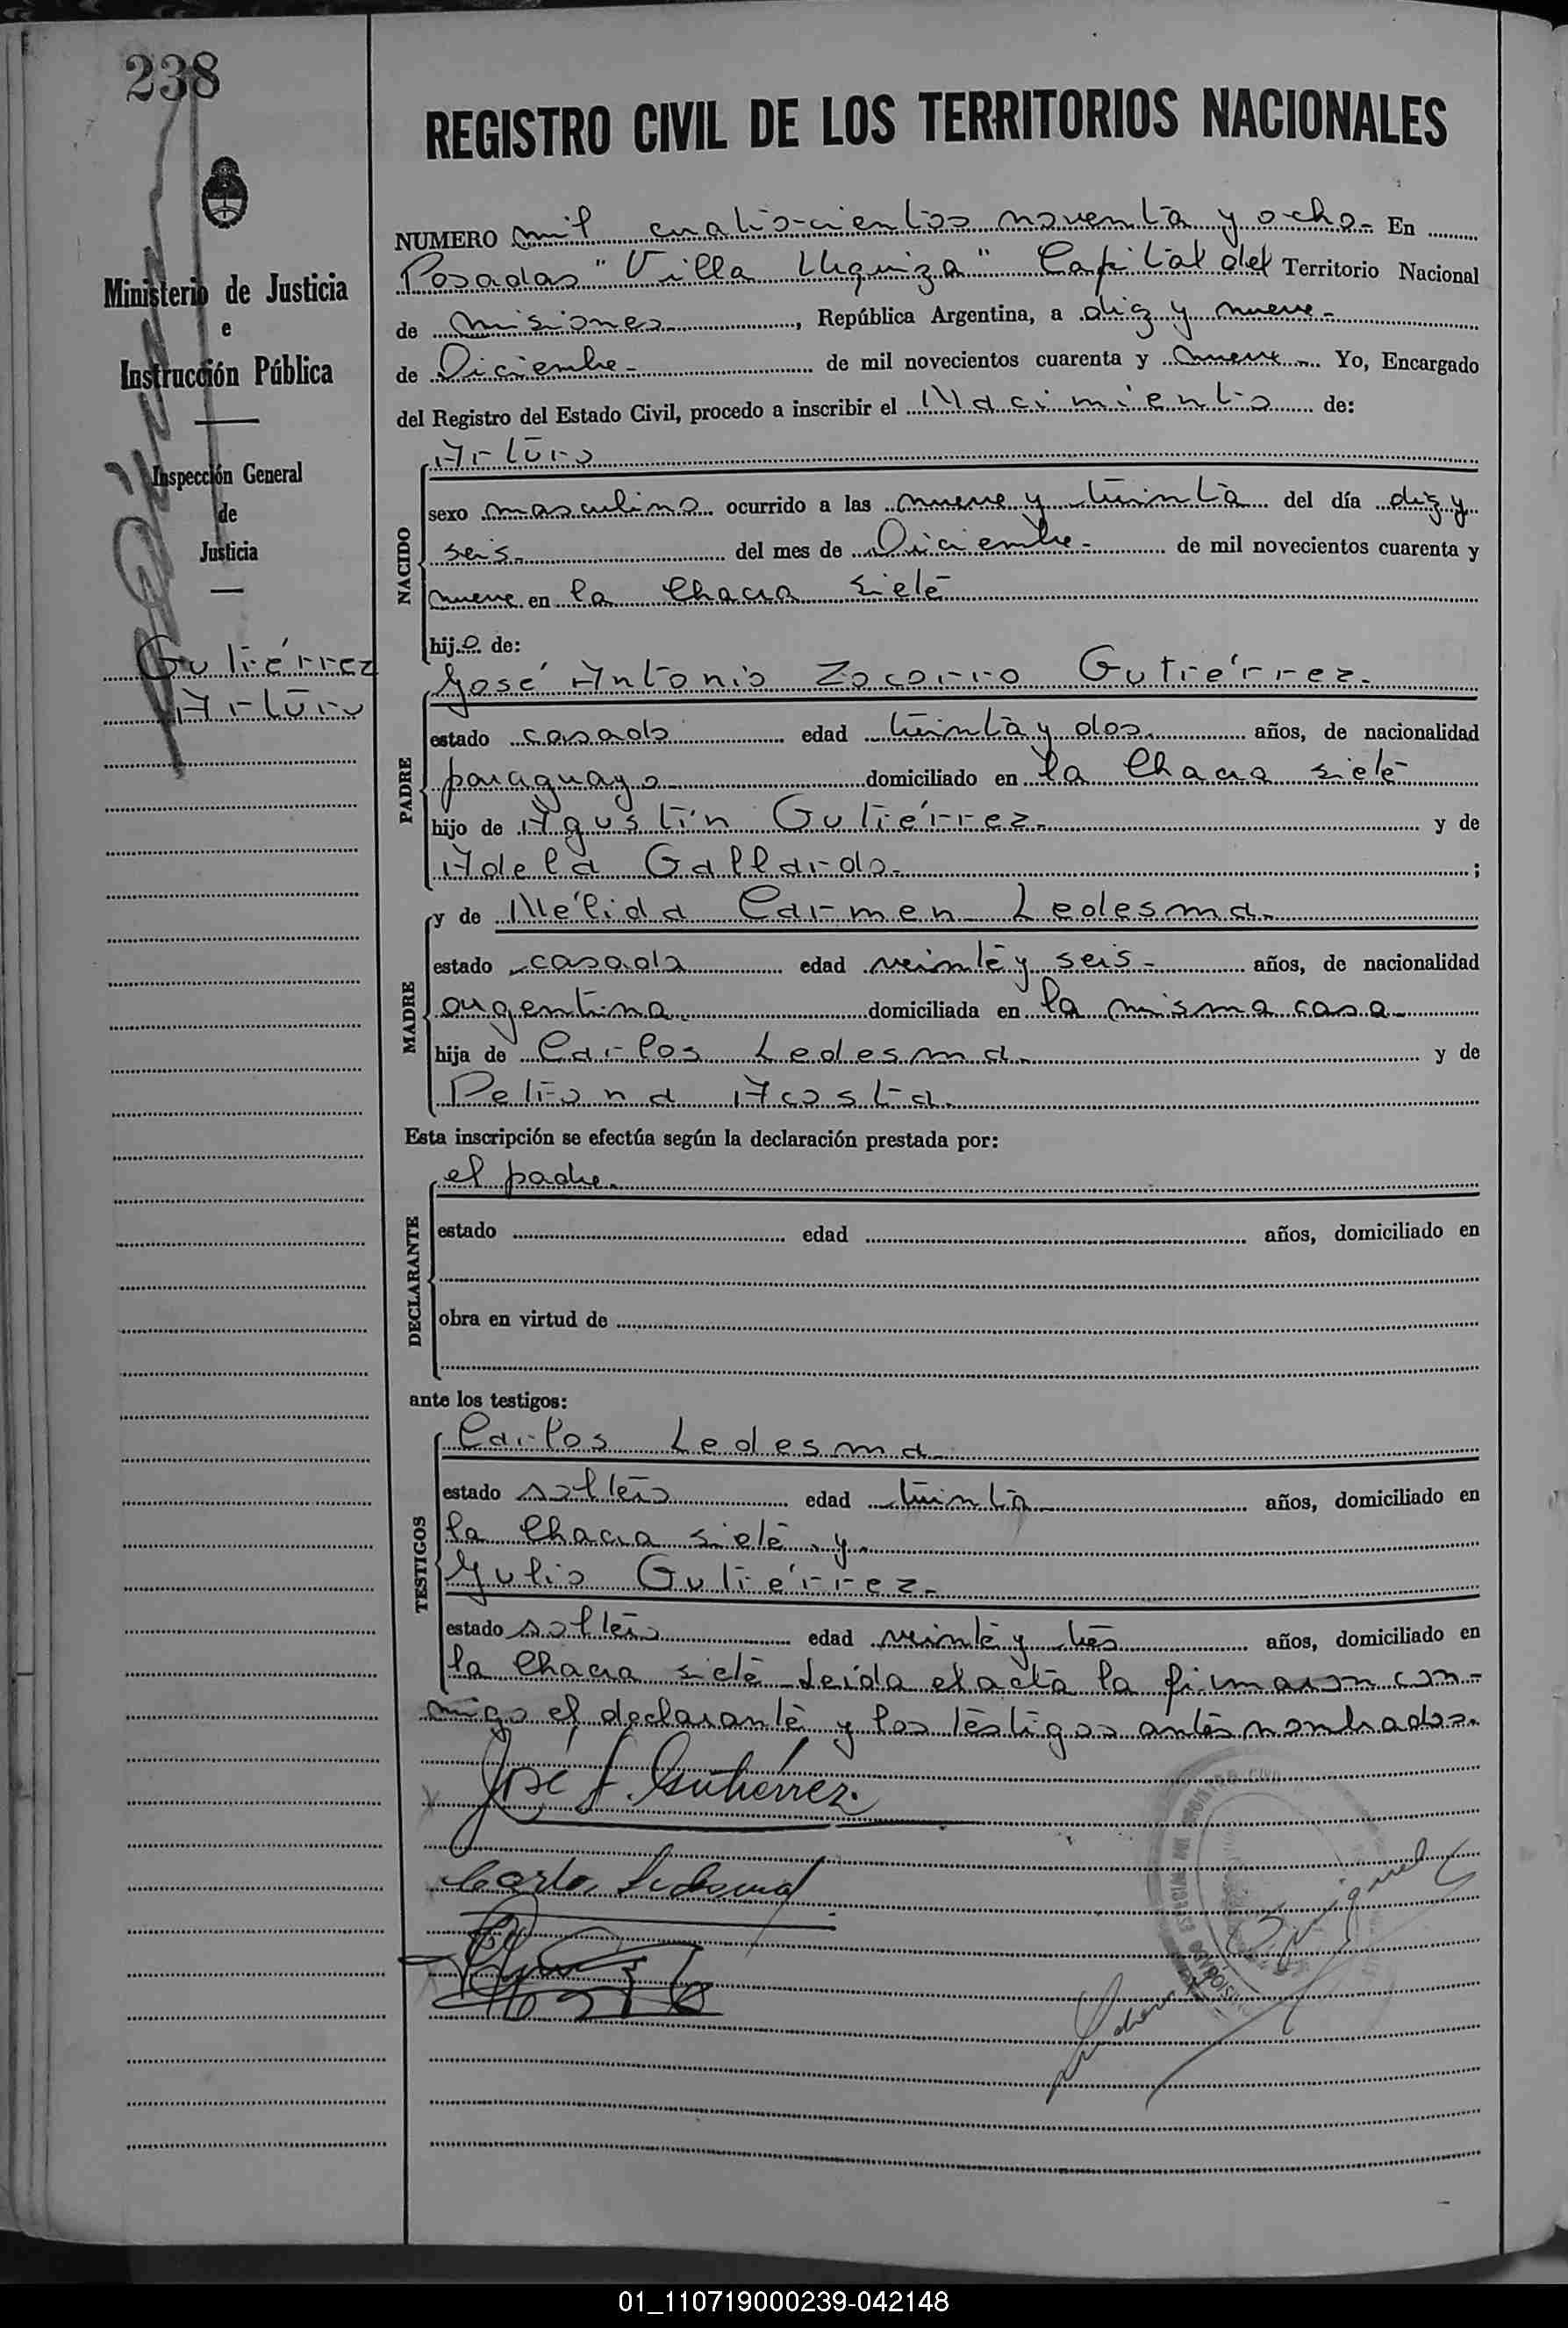 238
Ministerio de Justicia
e
Instrucción Pública
Inspección General
de
Justicia
Gutiérrez
Arturo
REGISTRO CIVIL DE LOS TERRITORIOS NACIONALES
NUMERO mil cuatrocientos noventa y ocho.- En
Posadas "Villa Urquiza" Capital del Territorio Nacional
de Misiones, República Argentina, a diez y nueve.-
de Diciembre.- de mil novecientos cuarenta y nueve.- Yo, Encargado
del Registro del Estado Civil, procedo a inscribir el Nacimiento de:
NACIDO
Arturo
sexo masculino ocurrido a las nueve y treinta del día diez y
seis. del mes de Diciembre.- de mil novecientos cuarenta y
nueve en la Chacra siete
hijo de:
PADRE
José Antonio Zocorro Gutiérrez.
estado casado edad treinta y dos. años, de nacionalidad
paraguayo domiciliado en la Chacra siete
hijo de Agustín Gutiérrez. y de
Adela Gallardo. ;
MADRE
y de Nélida Carmen Ledesma.
estado casada edad veinte y seis.- años, de nacionalidad
argentina. domiciliada en la misma casa.
hija de Carlos Ledesma. y de
Petrona Acosta.
Esta inscripción se efectúa según la declaración prestada por:
DECLARANTE
el padre.
estado edad años, domiciliado en
obra en virtud de
ante los testigos:
TESTIGOS
Carlos Ledesma.
estado soltero edad treinta años, domiciliado en
la Chacra siete y.
Julio Gutiérrez.
estado soltero edad veinte y tres años, domiciliado en
la Chacra siete Leída el acta la firmaron con-
migo el declarante y los testigos antes nombrados.
José A. Gutiérrez.
Carlos Ledesma
01_110719000239-042148